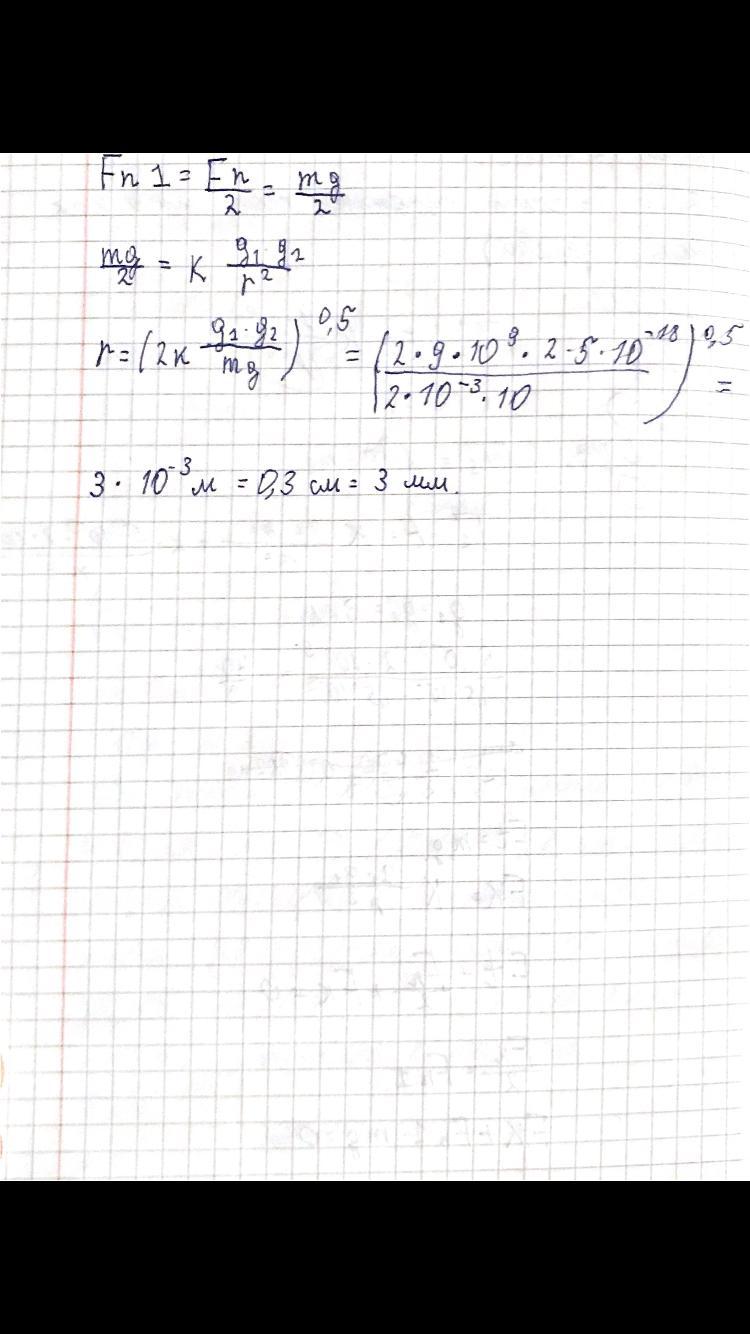 Fn 1 = Fn/2 = mg/2
mg/2 = K g₁·g₂/r²
r = (2к g₁·g₂/mg)^0,5 = (2·9·10⁹·2·5·10⁻¹⁸/2·10⁻³·10)^0,5 =
3·10⁻³м = 0,3 см = 3 мм.